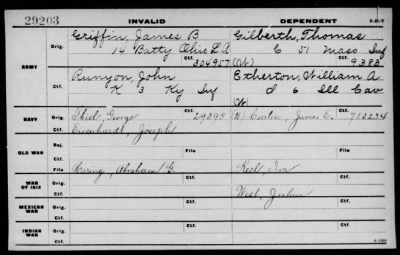 29203
INVALID
DEPENDENT
ARMY
Orig.
Griffin, James B
Gilberth, Thomas
14 Batty Ohio L A
E 51 Mass Inf
Ctf.
304957
9382
Orig.
Runyon, John
Etherton, William A
K 3 Ky Inf
6 Ill Cav
Ctf.
NAVY
Orig.
Thiel, George
29395
James E.
713234
Ctf.
Eisenhardt, Joseph
OLD WAR
Rej.
File
File
Ctf.
WAR OF 1812
File
Abraham G.
Ctf.
West,
MEXICAN WAR
Orig.
Ctf.
INDIAN WAR
Orig.
Ctf.